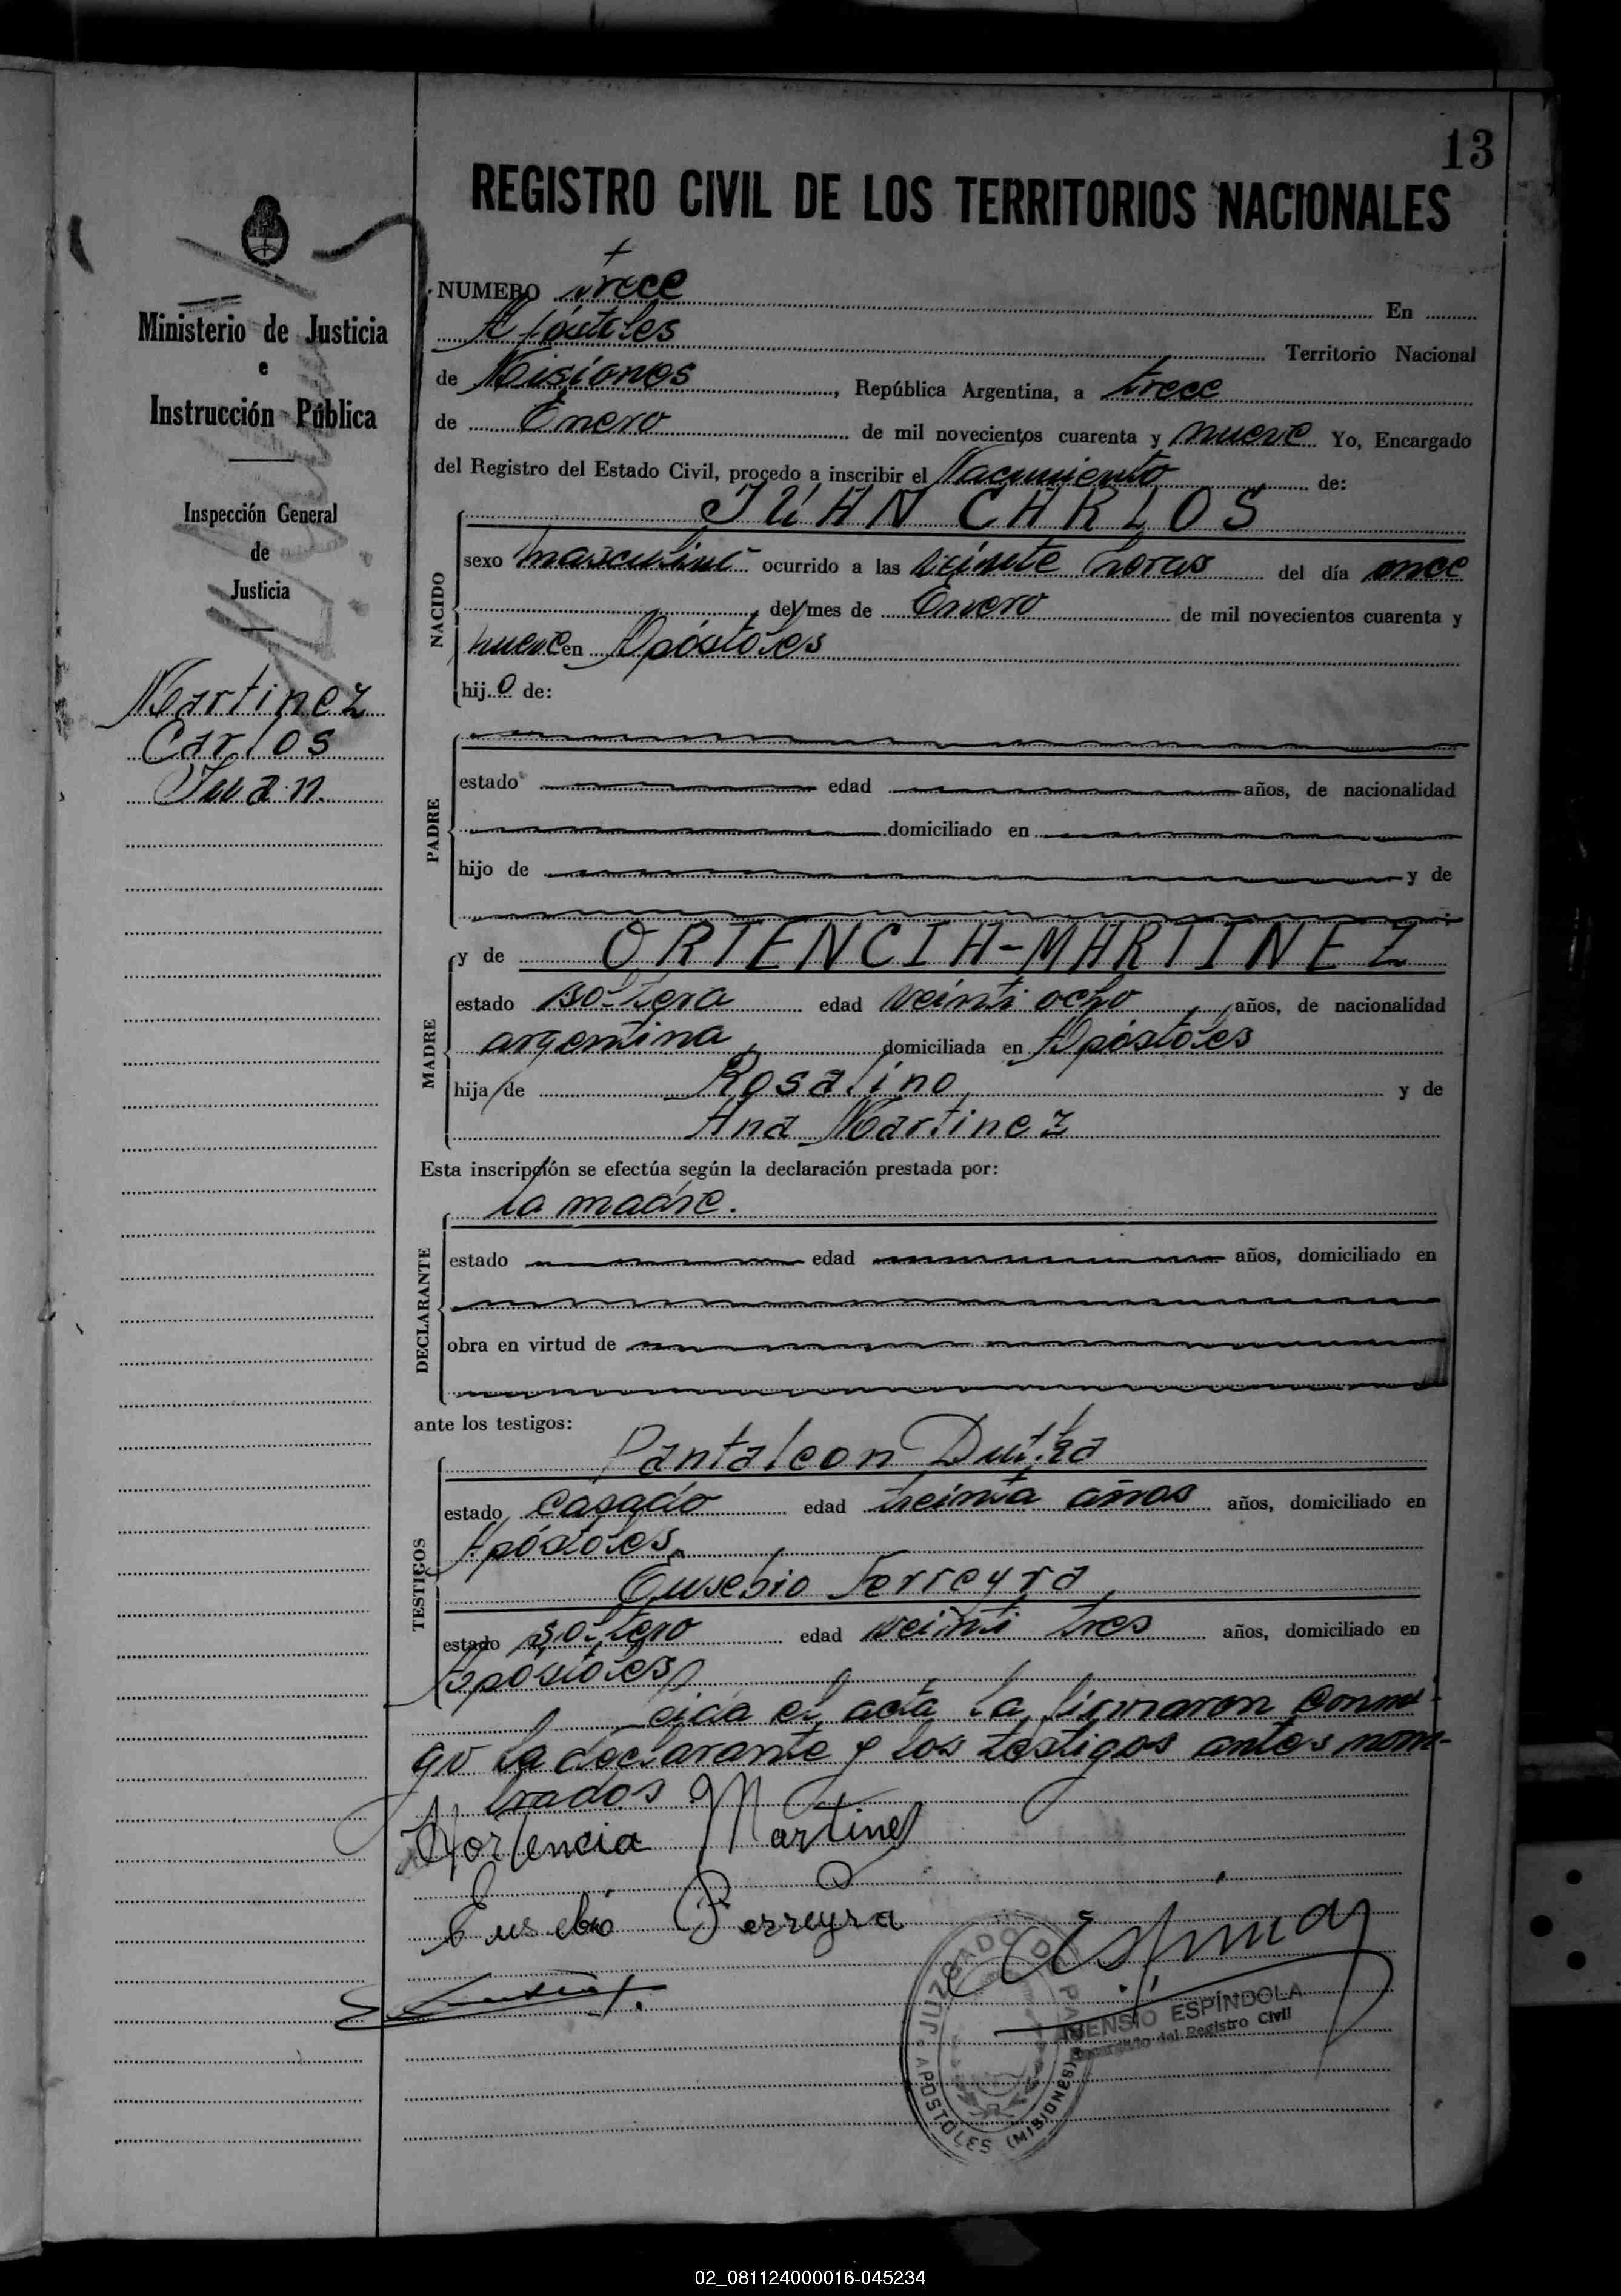 13
REGISTRO CIVIL DE LOS TERRITORIOS NACIONALES
Ministerio de Justicia
e
Instrucción Pública
Inspección General
de
Justicia
Martinez
Carlos
Juan
NUMERO trece En
Apóstoles Territorio Nacional
de Misiones, República Argentina, a trece
de Enero de mil novecientos cuarenta y nueve Yo, Encargado
del Registro del Estado Civil, procedo a inscribir el Nacimiento de:
JUAN CARLOS
NACIDO
sexo masculino ocurrido a las veinte horas del día once
del mes de Enero de mil novecientos cuarenta y
nueve en Apóstoles
hijo de:
PADRE
estado edad años, de nacionalidad
domiciliado en
hijo de y de
MADRE
y de ORTENCIA-MARTINEZ
estado soltera edad veinti ocho años, de nacionalidad
argentina domiciliada en Apóstoles
hija de Rosalino y de
Ana Martinez
Esta inscripción se efectúa según la declaración prestada por:
la madre.
DECLARANTE
estado edad años, domiciliado en
obra en virtud de
ante los testigos:
TESTIGOS
Pantaleon
estado casado edad treinta años años, domiciliado en
Apóstoles
Eusebio Ferreyra
estado soltero edad veinti tres años, domiciliado en
Apóstoles
el acta la firmaron conmi-
go la declarante y los testigos antes nom-
brados
Hortencia Martinez
Eusebio Ferreyra
JUZGADO DE PAZ
APOSTOLES (MISIONES)
ASENSIO ESPÍNDOLA
Encargado del Registro Civil
02_081124000016-045234